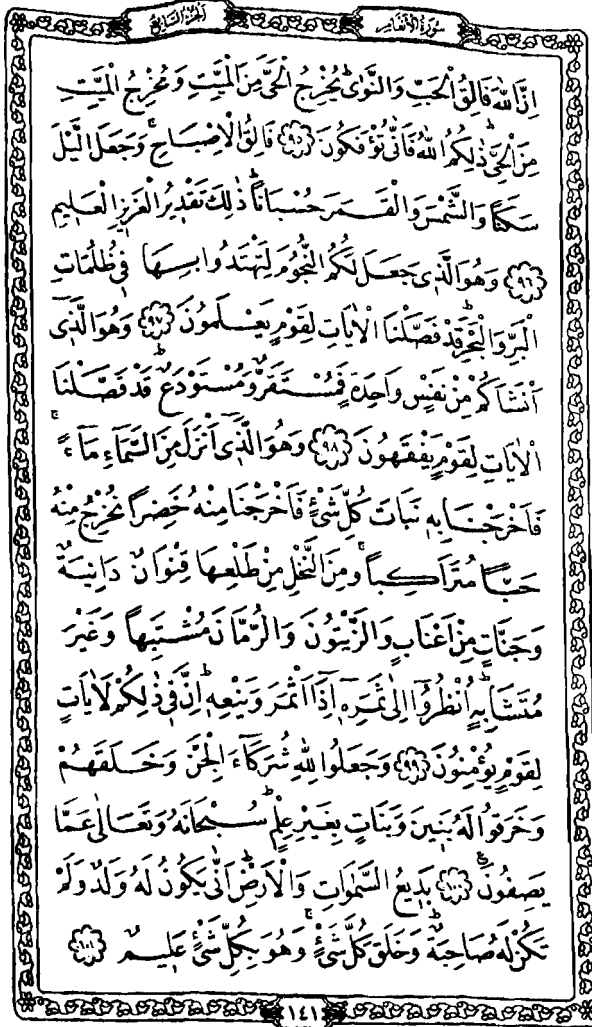 سُورَةُ الْاَنْعَامِ
اَلْجُزْءُ السَّابِعُ
اِنَّ اللّٰهَ فَالِقُ الْحَبِّ وَالنَّوٰىۜ يُخْرِجُ الْحَيَّ مِنَ الْمَيِّتِ وَمُخْرِجُ الْمَيِّتِ
مِنَ الْحَيِّۜ ذٰلِكُمُ اللّٰهُ فَاَنّٰى تُؤْفَكُونَ ﴿٩٥﴾ فَالِقُ الْاِصْبَاحِۚ وَجَعَلَ الَّيْلَ
سَكَنًا وَالشَّمْسَ وَالْقَمَرَ حُسْبَانًاۜ ذٰلِكَ تَقْدِيرُ الْعَزِيزِ الْعَلِيمِ
﴿٩٦﴾ وَهُوَ الَّذِى جَعَلَ لَكُمُ النُّجُومَ لِتَهْتَدُوا بِهَا فِى ظُلُمَاتِ
الْبَرِّ وَالْبَحْرِۜ قَدْ فَصَّلْنَا الْاٰيَاتِ لِقَوْمٍ يَعْلَمُونَ ﴿٩٧﴾ وَهُوَ الَّذِٓى
اَنْشَاَكُمْ مِنْ نَفْسٍ وَاحِدَةٍ فَمُسْتَقَرٌّ وَمُسْتَوْدَعٌۜ قَدْ فَصَّلْنَا
الْاٰيَاتِ لِقَوْمٍ يَفْقَهُونَ ﴿٩٨﴾ وَهُوَ الَّذِٓى اَنْزَلَ مِنَ السَّمَٓاءِ مَٓاءًۚ
فَاَخْرَجْنَا بِهِ نَبَاتَ كُلِّ شَىْءٍ فَاَخْرَجْنَا مِنْهُ خَضِرًا نُخْرِجُ مِنْهُ
حَبًّا مُتَرَاكِبًاۚ وَمِنَ النَّخْلِ مِنْ طَلْعِهَا قِنْوَانٌ دَانِيَةٌ
وَجَنَّاتٍ مِنْ اَعْنَابٍ وَالزَّيْتُونَ وَالرُّمَّانَ مُشْتَبِهًا وَغَيْرَ
مُتَشَابِهٍۜ اُنْظُرُٓوا اِلٰى ثَمَرِهِٓ اِذَٓا اَثْمَرَ وَيَنْعِهِۜ اِنَّ فِى ذٰلِكُمْ لَاٰيَاتٍ
لِقَوْمٍ يُؤْمِنُونَ ﴿٩٩﴾ وَجَعَلُوا لِلّٰهِ شُرَكَٓاءَ الْجِنَّ وَخَلَقَهُمْ
وَخَرَقُوا لَهُ بَنِينَ وَبَنَاتٍ بِغَيْرِ عِلْمٍۜ سُبْحَانَهُ وَتَعَالٰى عَمَّا
يَصِفُونَ ﴿١٠٠﴾ بَدِيعُ السَّمٰوَاتِ وَالْاَرْضِۜ اَنّٰى يَكُونُ لَهُ وَلَدٌ وَلَمْ
تَكُنْ لَهُ صَاحِبَةٌۜ وَخَلَقَ كُلَّ شَىْءٍۚ وَهُوَ بِكُلِّ شَىْءٍ عَلِيمٌ ﴿١٠١﴾
١٤١